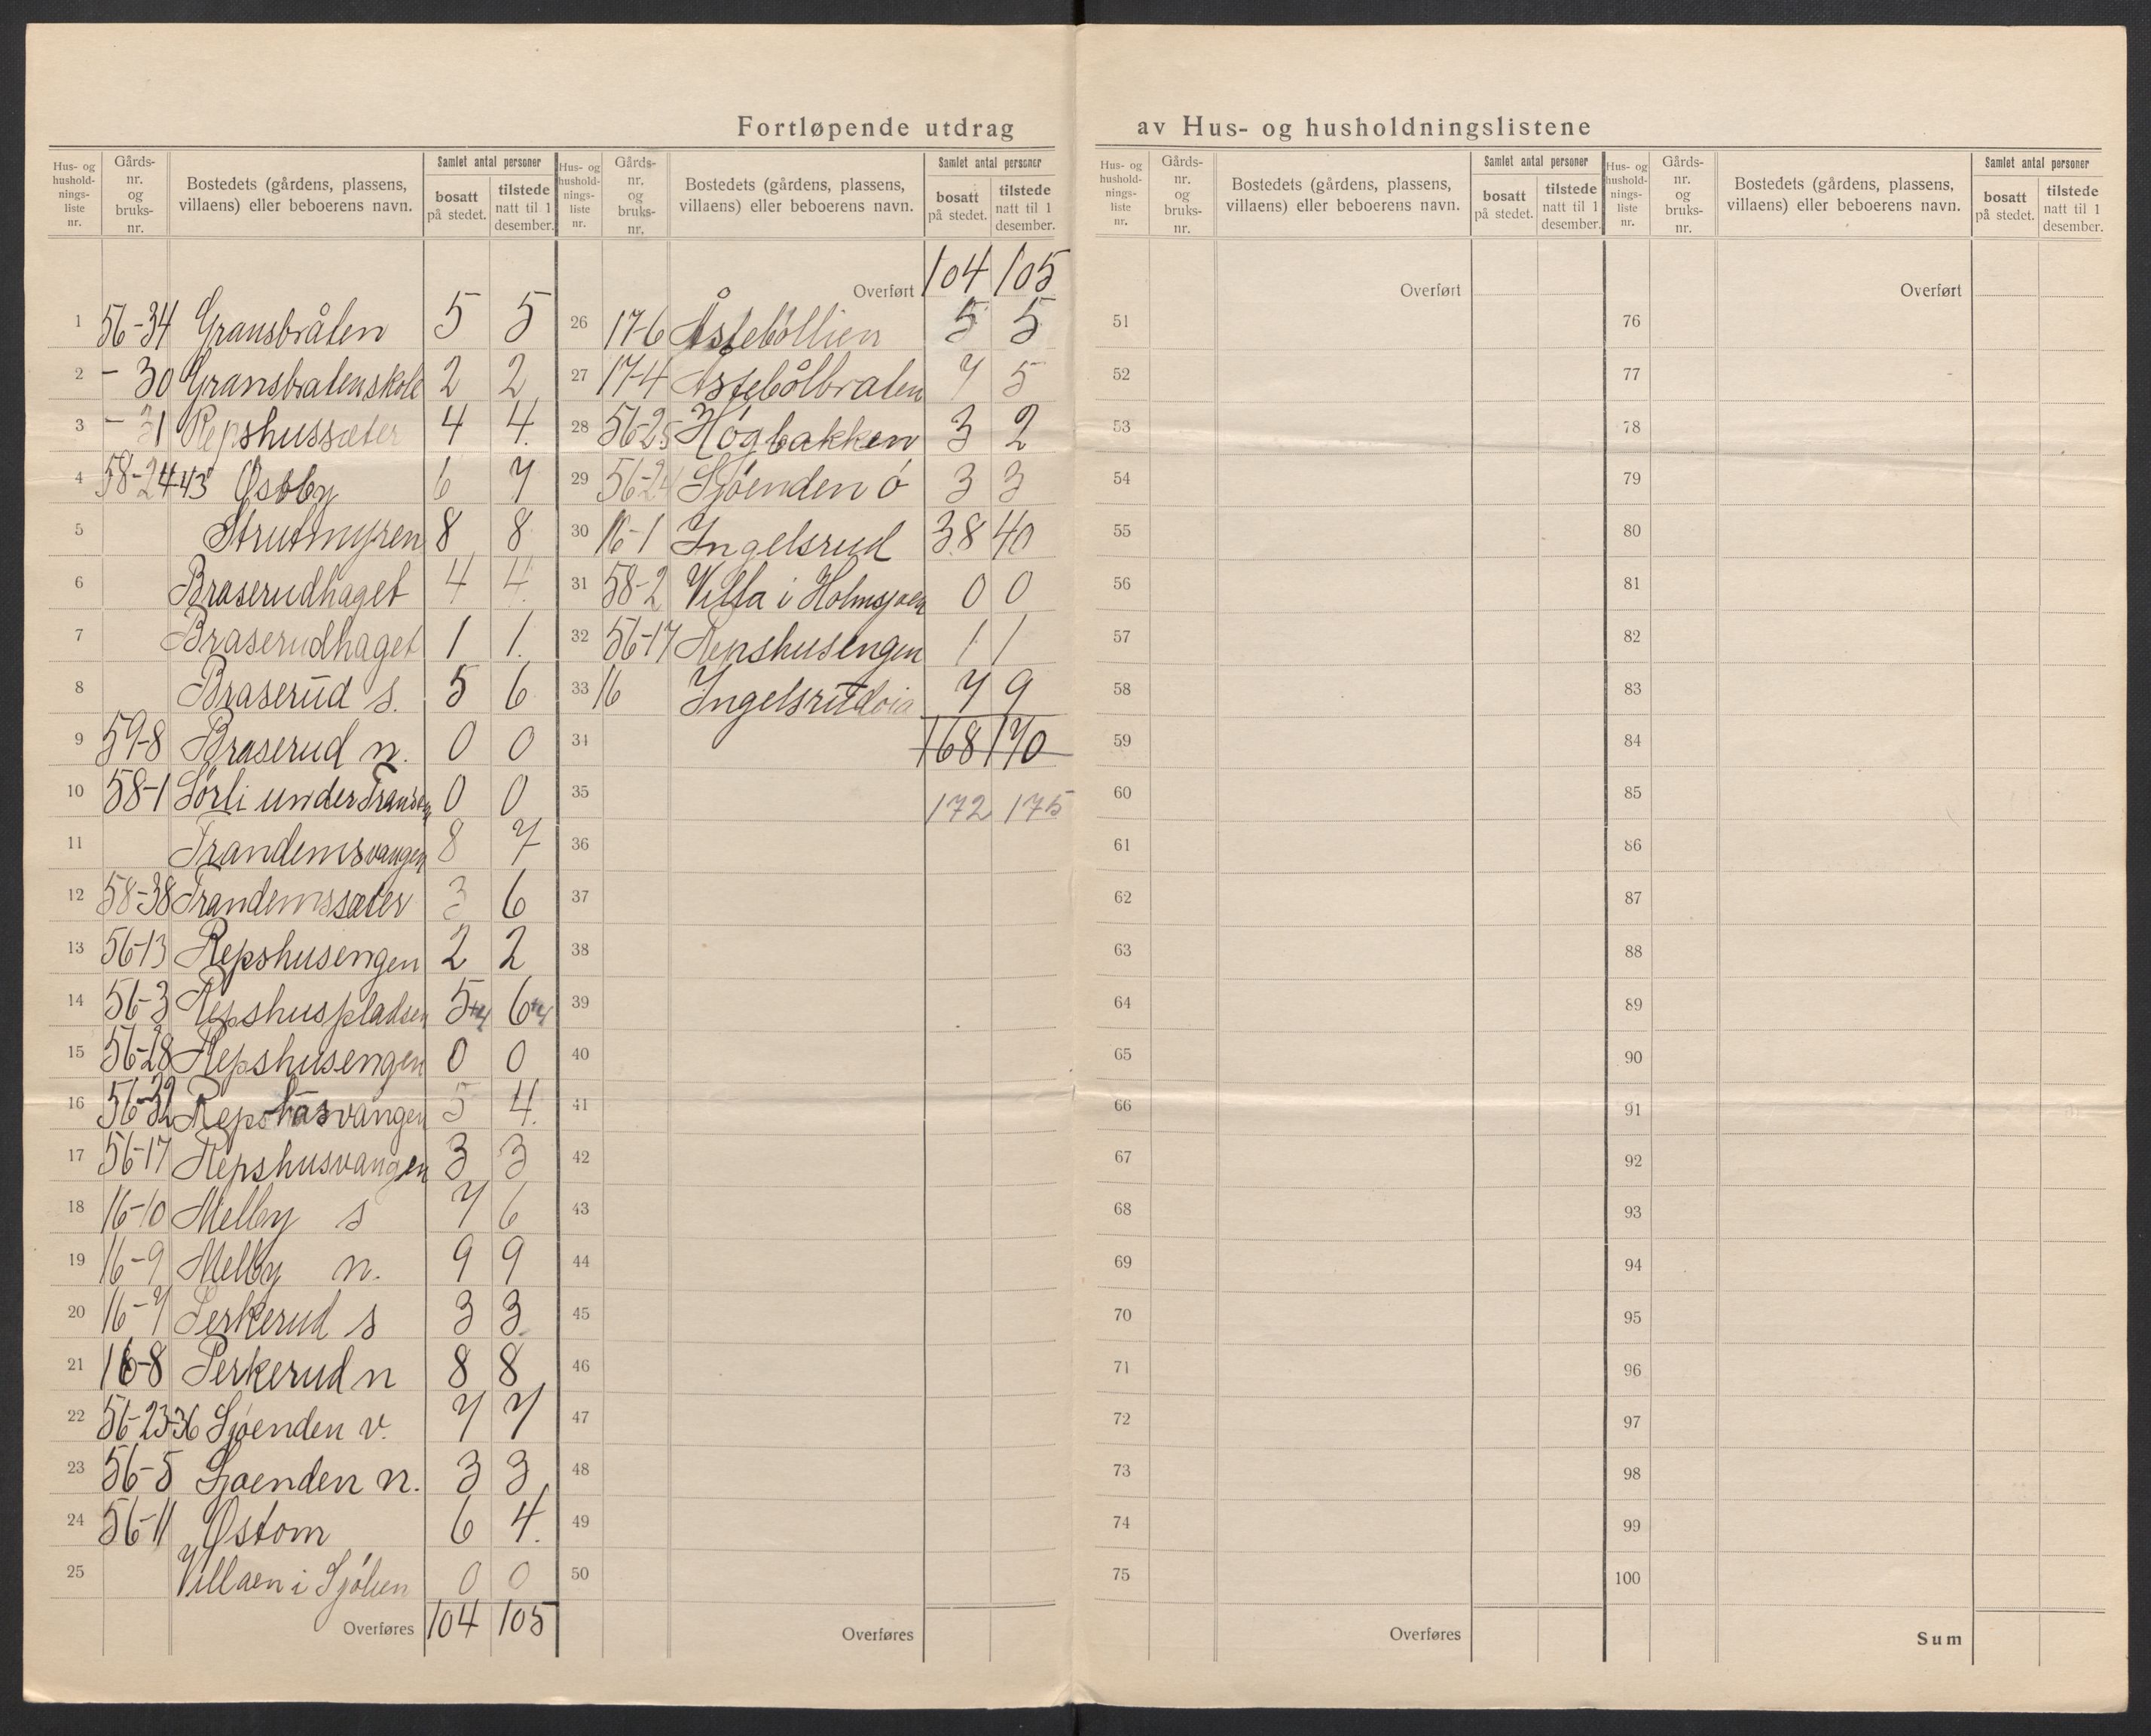 Fortløpende utdrag av Hus- og husholdningslistene
Hus- og hushold-nings-liste nr. Gårds-nr. og bruks-nr. Bostedets (gårdens, plassens, villaens) eller beboerens navn. Samlet antal personer bosatt på stedet. tilstede natt til 1 desember.
1 56-34 Gransbråten 5 5
2 - 30 Gransbratenskole 2 2
3 - 31 Repshussæter 4 4
4 58-24-43 Østby 6 7
5 Strutmyren 8 8
6 Braserudhaget 4 4
7 Braserudhaget 1 1
8 Braserud s. 5 6
9 59-8 Braserud n. 0 0
10 58-1 Sørli under 0 0
11 Trandemsvangen 8 7
12 58-38 Trandemssæter 3 6
13 56-13 Repshusengen 2 2
14 56-3 Repshuspladsen 5+4 6+4
15 56-28 Repshusengen 0 0
16 56-32 Repshusvangen 5 4
17 56-17 Repshusvangen 3 3
18 16-10 Melby s 7 6
19 16-9 Melby n. 9 9
20 16-7 Perkerud s 3 3
21 16-8 Perkerud n 8 8
22 56-23-36 Sjøenden v. 7 7
23 56-5 Sjøenden n. 3 3
24 56-11 Østom 6 4
25 Villaen i 0 0
Overføres 104 105
Hus- og hushold-nings-liste nr. Gårds-nr. og bruks-nr. Bostedets (gårdens, plassens, villaens) eller beboerens navn. Samlet antal personer bosatt på stedet. tilstede natt til 1 desember.
Overført 104 105
26 17-6 Åstebøllien 5 5
27 17-4 Åstebølbraten 7 5
28 56-25 Høgbakken 3 2
29 56-24 Sjøenden ø 3 3
30 16-1 Ingelsrud 38 40
31 58-2 Villa i Holmsjøen 0 0
32 56-17 Repshusengen 1 1
33 16 7 9
34 168 170
35 172 175
36
37
38
39
40
41
42
43
44
45
46
47
48
49
50
Overføres
Hus- og hushold-nings-liste nr. Gårds-nr. og bruks-nr. Bostedets (gårdens, plassens, villaens) eller beboerens navn. Samlet antal personer bosatt på stedet. tilstede natt til 1 desember.
Overført
51
52
53
54
55
56
57
58
59
60
61
62
63
64
65
66
67
68
69
70
71
72
73
74
75
Overføres
Hus- og hushold-nings-liste nr. Gårds-nr. og bruks-nr. Bostedets (gårdens, plassens, villaens) eller beboerens navn. Samlet antal personer bosatt på stedet. tilstede natt til 1 desember.
Overført
76
77
78
79
80
81
82
83
84
85
86
87
88
89
90
91
92
93
94
95
96
97
98
99
100
Sum